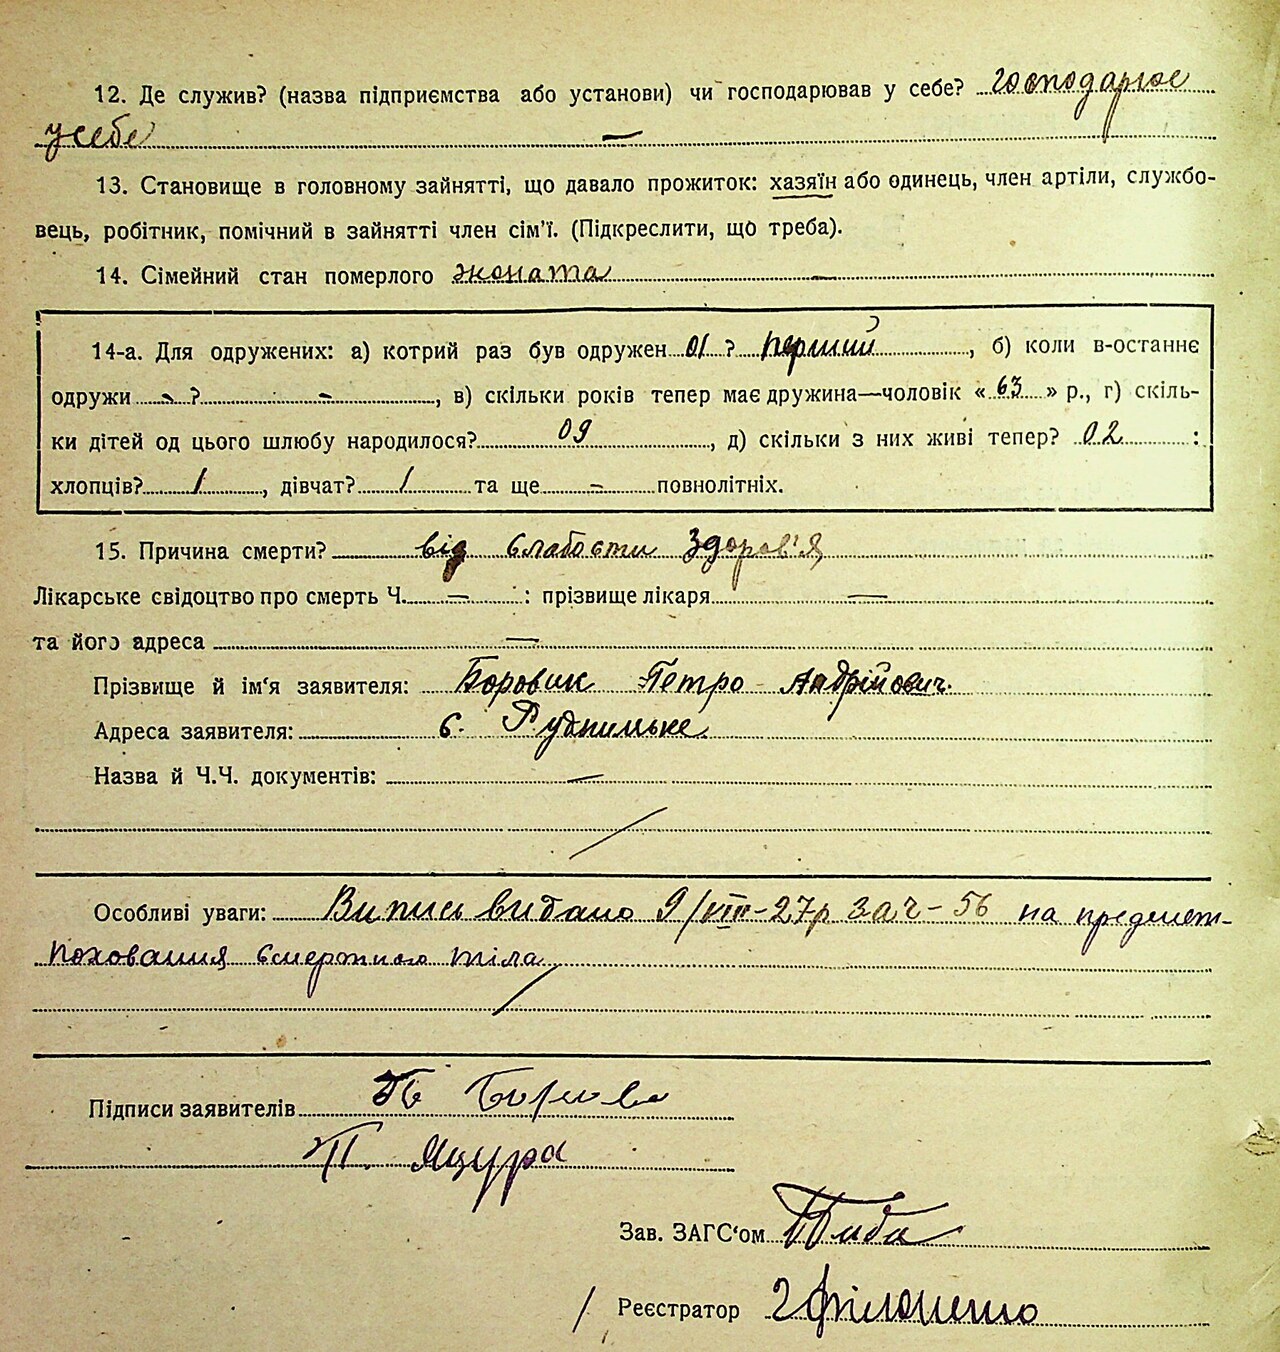 12. Де служив? (назва підприємства або установи) чи господарював у себе? господарює
у себе —
13. Становище в головному зайнятті, що давало прожиток: хазяїн або одинець, член артілі, службо-
вець, робітник, помічний в зайнятті член сім'ї. (Підкреслити, що треба).
14. Сімейний стан померлого жоната —
14-а. Для одружених: а) котрий раз був одружен 01 ? перший, б) коли в-останнє
одружи - ? -, в) скільки років тепер має дружина—чоловік « 63 » р., г) скіль-
ки дітей од цього шлюбу народилося? 09, д) скільки з них живі тепер? 02 :
хлопців? 1, дівчат? 1 та ще - повнолітніх.
15. Причина смерти? від слабости здоров'я
Лікарське свідоцтво про смерть Ч. — : прізвище лікаря —
та його адреса —
Прізвище й ім'я заявителя: Боровик Петро Андрійович.
Адреса заявителя: с.
Назва й Ч.Ч. документів: —
Особливі уваги: Випись видано 9/VIII-27р за ч-56 на предмет
поховання смертного тіла
Підписи заявителів
П. Яцура
Зав. ЗАГС'ом
Реєстратор